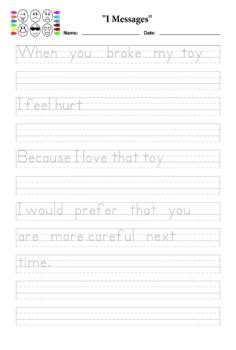 "I Messages"
Name: Date:
When you broke my toy
I feel hurt
Because I love that toy
I would prefer that you
are more careful next
time.